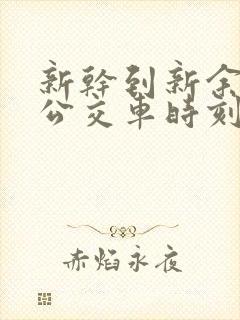 新幹到新余
公交車時刻
赤焰永夜